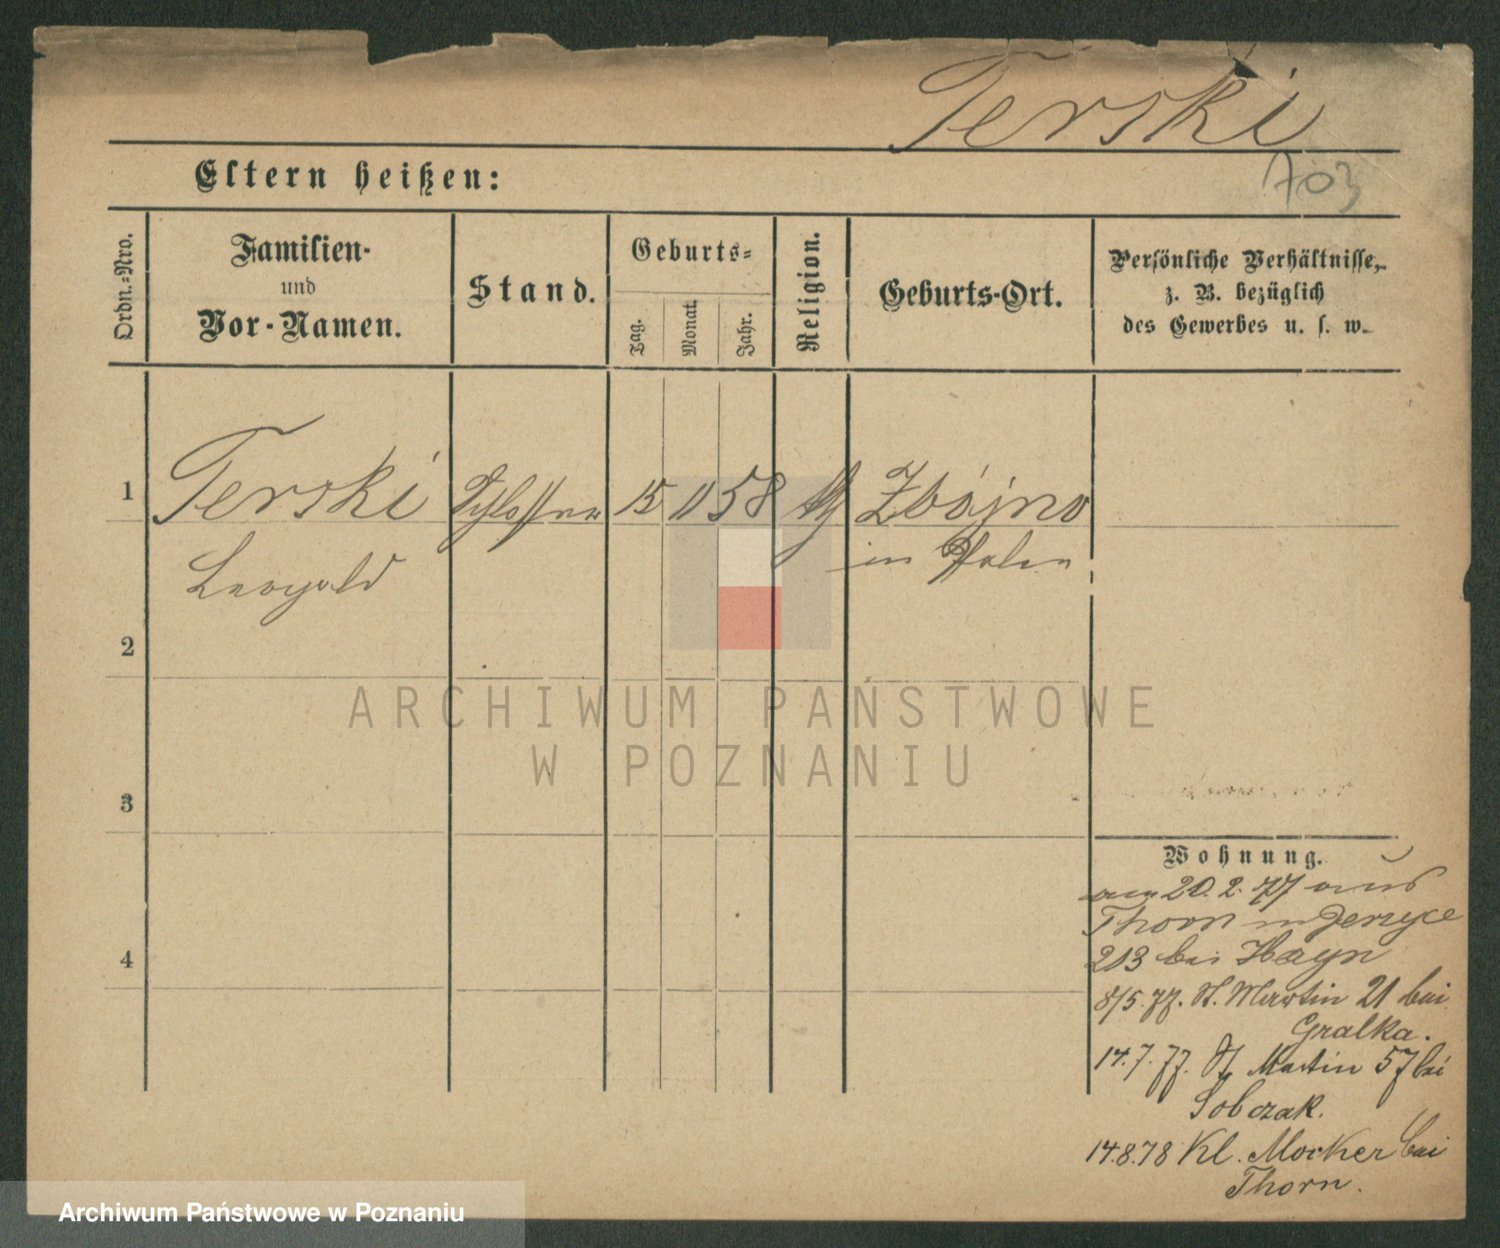 Terski
703
Eltern heißen:
Ordn.-Nro.
Familien-
und
Vor-Namen.
Stand.
Geburts-
Tag.
Monat.
Jahr.
Religion.
Geburts-Ort.
Persönliche Verhältnisse,
z. B. bezüglich
des Gewerbes u. s. w.
1 Terski Schlosser 15 11 58 Zbójno
Leopold in Polen
2
ARCHIWUM PAŃSTWOWE
W POZNANIU
3
Wohnung.
am 20. 2. 77 aus
Thorn in Jerzyce
213 bei Hayn
4
8/5. 77. St. Martin 21 bei
Gralka.
14. 7. 77. St Martin 57 bei
Sobczak.
14.8.78 Kl. Mocker bei
Thorn.
Archiwum Państwowe w Poznaniu